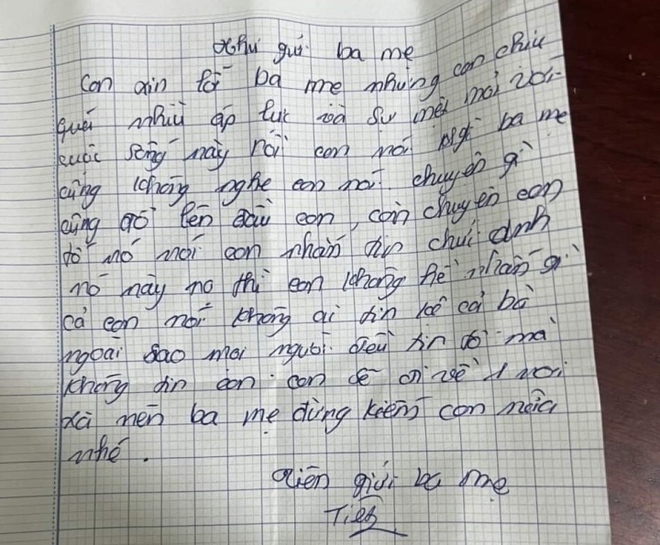 Thư gửi ba mẹ
Con xin lỗi ba mẹ nhưng con chịu
quá nhiều áp lực và sự mệt mỏi với
cuộc sống này rồi con nói gì ba mẹ
cũng không nghe con nói chuyện gì
cũng đổ lên đầu con, còn chuyện con
đó nó nói con nhắn tin chửi anh
nó này nọ thì con không hề nhắn gì
cả con nói không ai tin kể cả bà
ngoại sao mọi người đều tin nó mà
không tin con. con sẽ đi về 1 nơi
xa nên ba mẹ đừng kiếm con nữa
nhé.
gửi ba mẹ